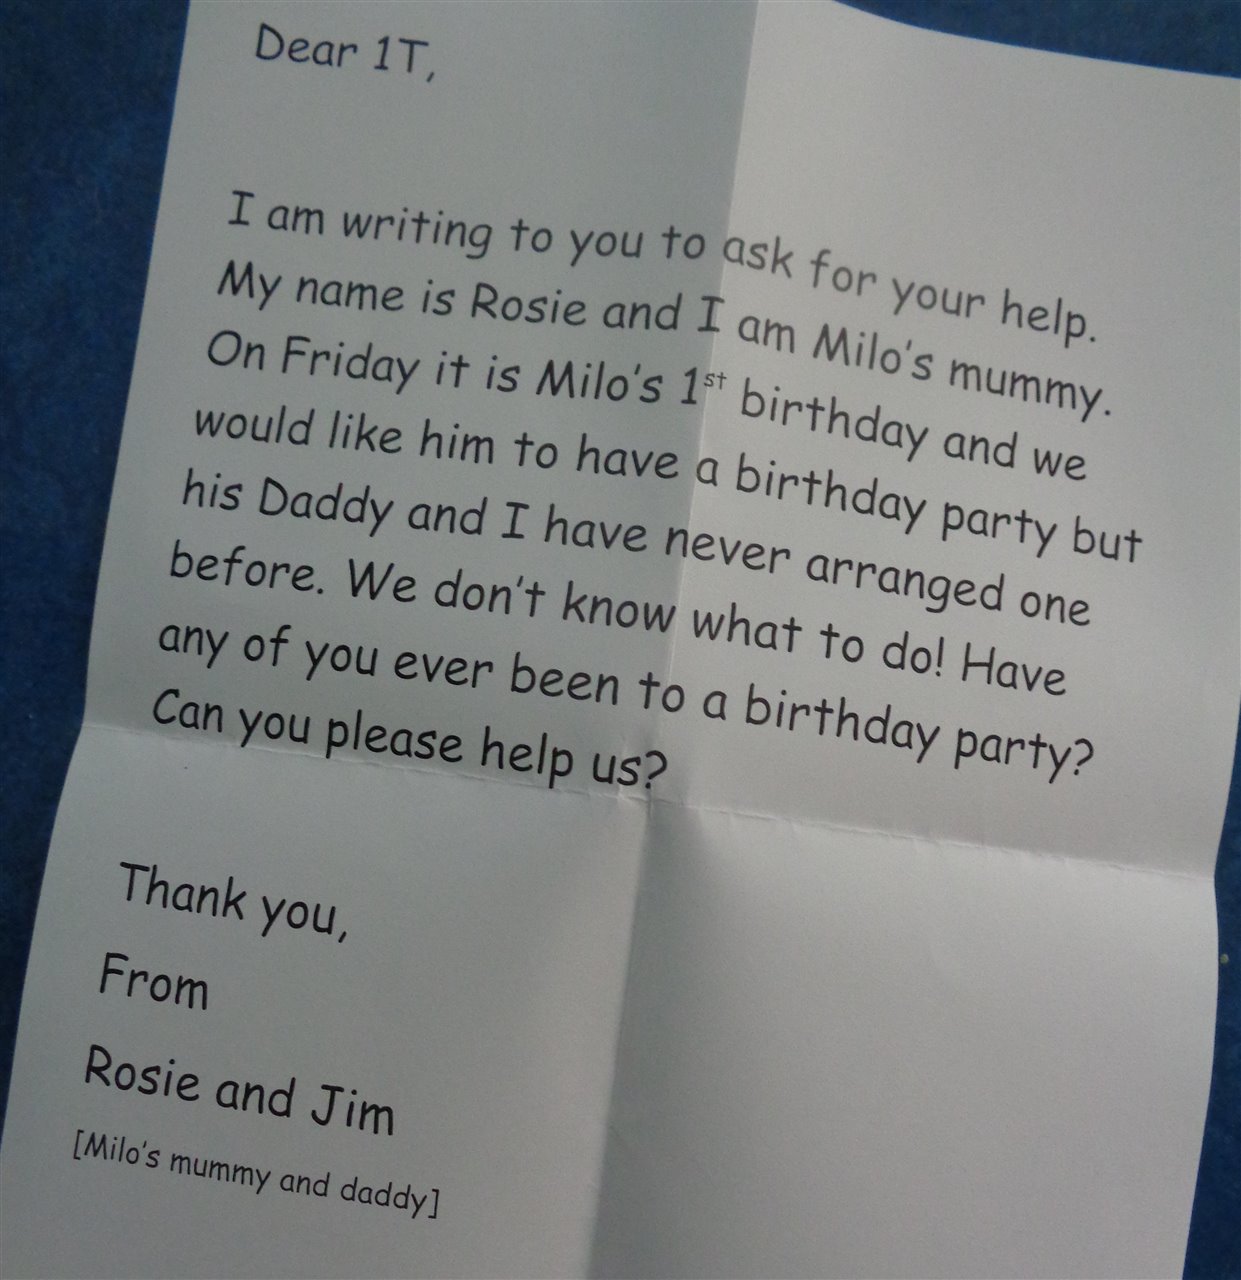 Dear 1T,
I am writing to you to ask for your help.
My name is Rosie and I am Milo's mummy.
On Friday it is Milo's 1st birthday and we
would like him to have a birthday party but
his Daddy and I have never arranged one
before. We don't know what to do! Have
any of you ever been to a birthday party?
Can you please help us?
Thank you,
From
Rosie and Jim
[Milo's mummy and daddy]